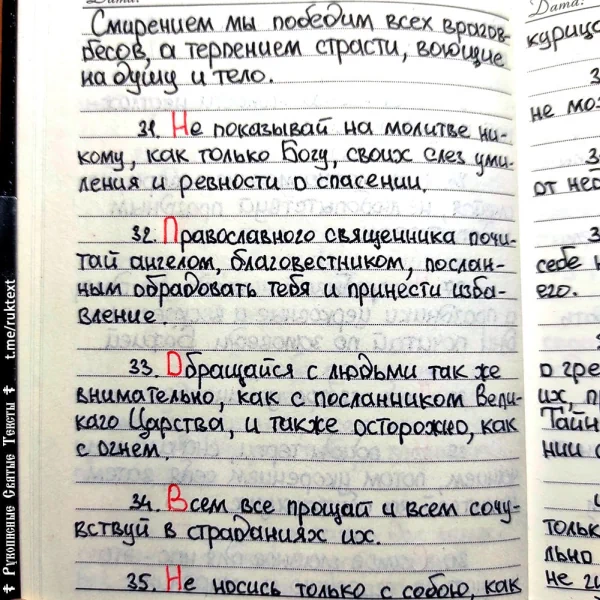 Дата:
Смирением мы победим всех врагов-
бесов, а терпением страсти, воюющие
на душу и тело.
31. Не показывай на молитве ни-
кому, как только Богу, своих слез уми-
ления и ревности о спасении.
32. Православного священника почи-
тай ангелом, благовестником, послан-
ным обрадовать тебя и принести изба-
вление.
33. Обращайся с людьми так же
внимательно, как с посланником Вели-
каго Царства, и также осторожно, как
с огнем.
34. Всем все прощай и всем сочу-
вствуй в страданиях их.
35. Не носись только с собою, как
Дата:
не
от
себе
его.
о
их,
нии
только
не
Рукописные Святые Тексты t.me/ruktext